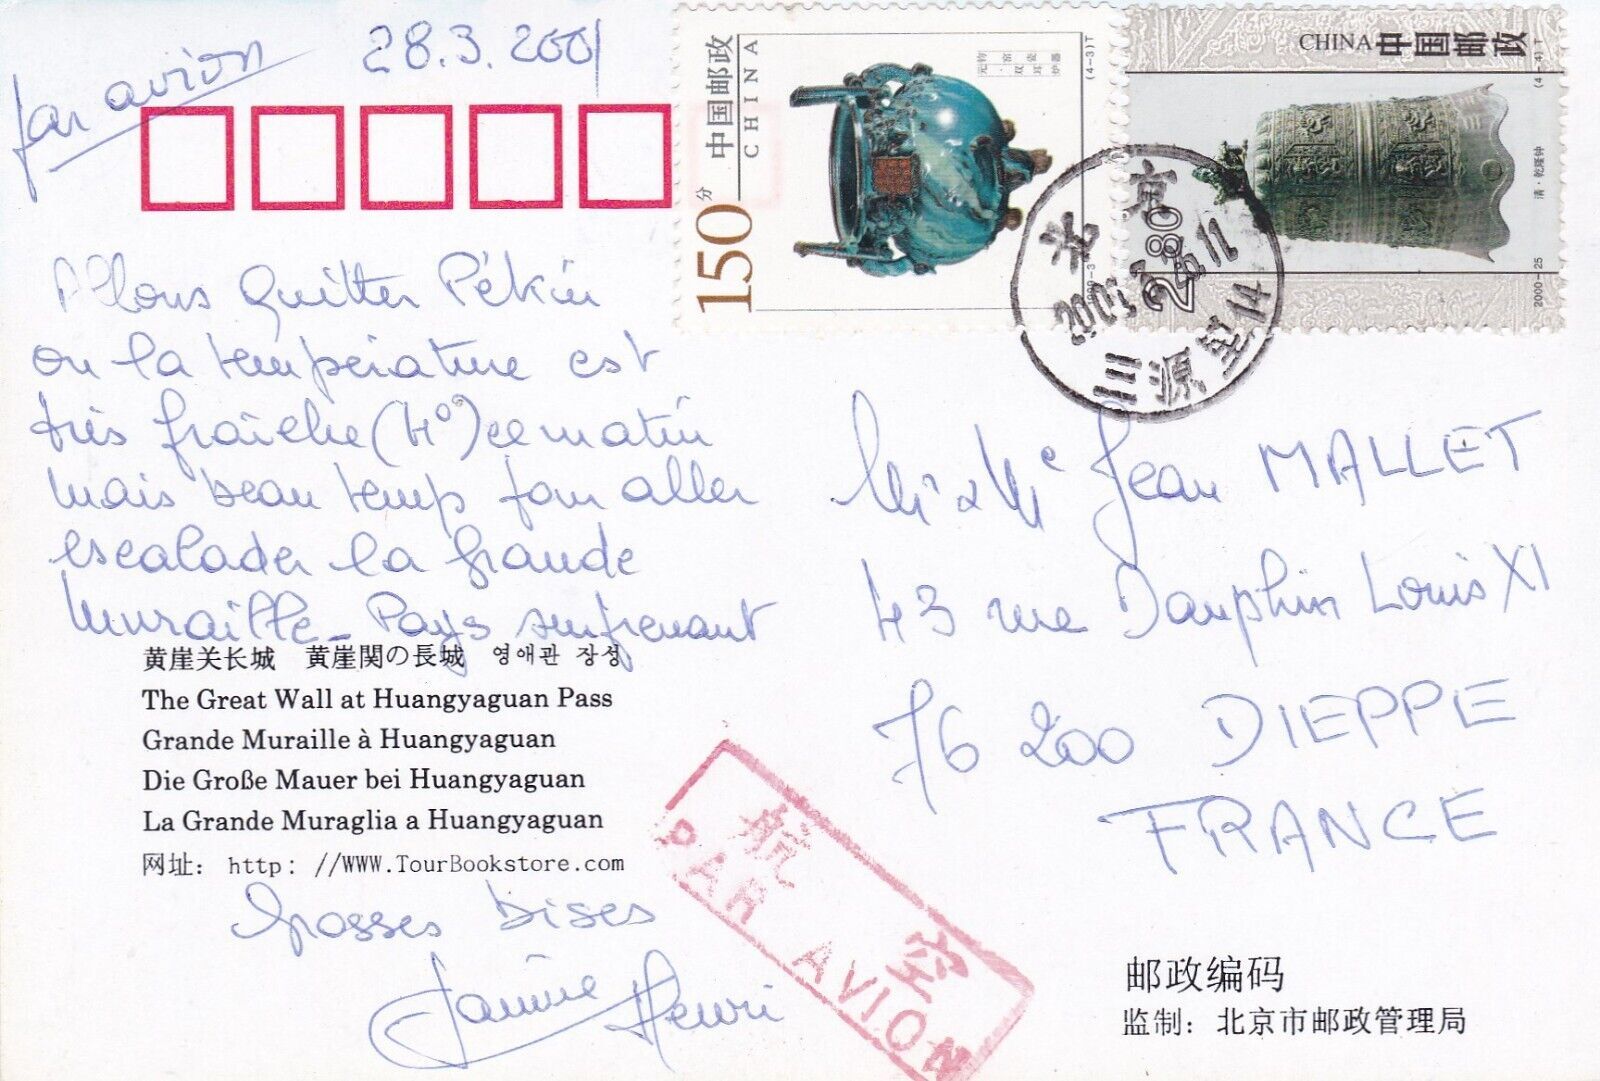 par avion
28.3.2001
中国邮政
CHINA
150分
元·钧窑双耳瓷炉器
(4-3)T
CHINA中国邮政
(4-4)T
清·乾隆钟
2000-25
280
北京
2001.
11
三源里
Allons quitter Pékin
ou la température est
très fraîche (4°) ce matin
mais beau temps pour aller
escalader la grande
muraille - Pays surprenant
黄崖关长城 黄崖関の長城 영애관 장성
The Great Wall at Huangyaguan Pass
Grande Muraille à Huangyaguan
Die Große Mauer bei Huangyaguan
La Grande Muraglia a Huangyaguan
网址: http: //WWW.TourBookstore.com
Grosses bises
Janine Henri
Mr & Me Jean MALLET
43 rue Dauphin Louis XI
76 200 DIEPPE
FRANCE
航空
PAR AVION
邮政编码
监制: 北京市邮政管理局